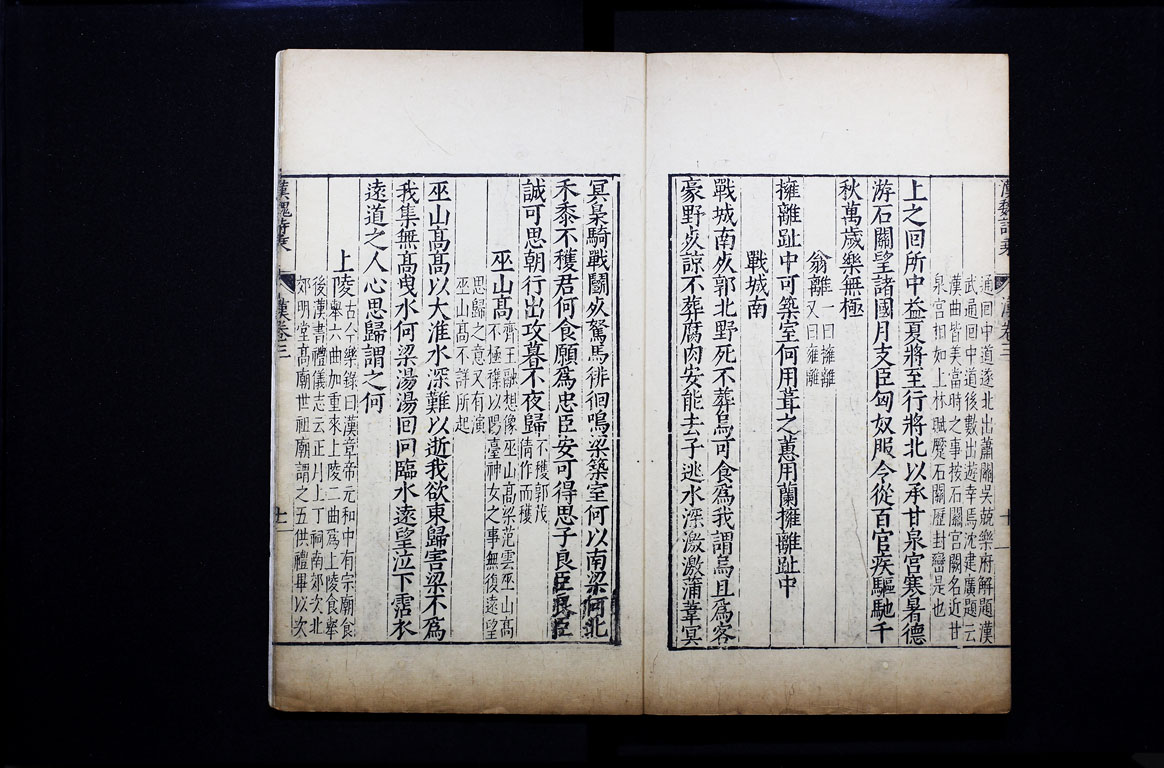 漢魏詩乘
漢卷三
十
通回中道遂北出蕭關吳兢樂府解題漢
武通回中道後數出遊幸焉沈建廣題云
漢曲皆美當時之事按石關宮關名近甘
泉宮相如上林賦蹷石關歷封巒是也
上之回所中益夏將至行將北以承甘泉宮寒暑德
游石關望諸國月支臣匈奴服令從百官疾驅馳千
秋萬歲樂無極
翁離
一曰擁離
又曰雍離
擁離趾中可築室何用葺之蕙用蘭擁離趾中
戰城南
戰城南死郭北野死不葬烏可食爲我謂烏且爲客
豪野死諒不葬腐肉安能去子逃水深激激蒲葦冥
冥梟騎戰鬭死駑馬徘徊鳴梁築室何以南梁何北
禾黍不穫君何食願爲忠臣安可得思子良臣良臣
誠可思朝行出攻暮不夜歸
不穫郭茂
倩作而穫
巫山高
齊王融想像巫山高梁范雲巫山高
不極襍以陽臺神女之事無復遠望
思歸之意又有演
巫山高不詳所起
巫山高高以大淮水深難以逝我欲東歸害梁不爲
我集無高曳水何梁湯湯回回臨水遠望泣下霑衣
遠道之人心思歸謂之何
上陵
古今樂錄曰漢章帝元和中有宗廟食
舉六曲加重來上陵二曲爲上陵食舉
後漢書禮儀志云正月上丁祠南郊次北
郊明堂高廟世祖廟謂之五供禮畢以次
漢魏詩乘
漢卷三
十一